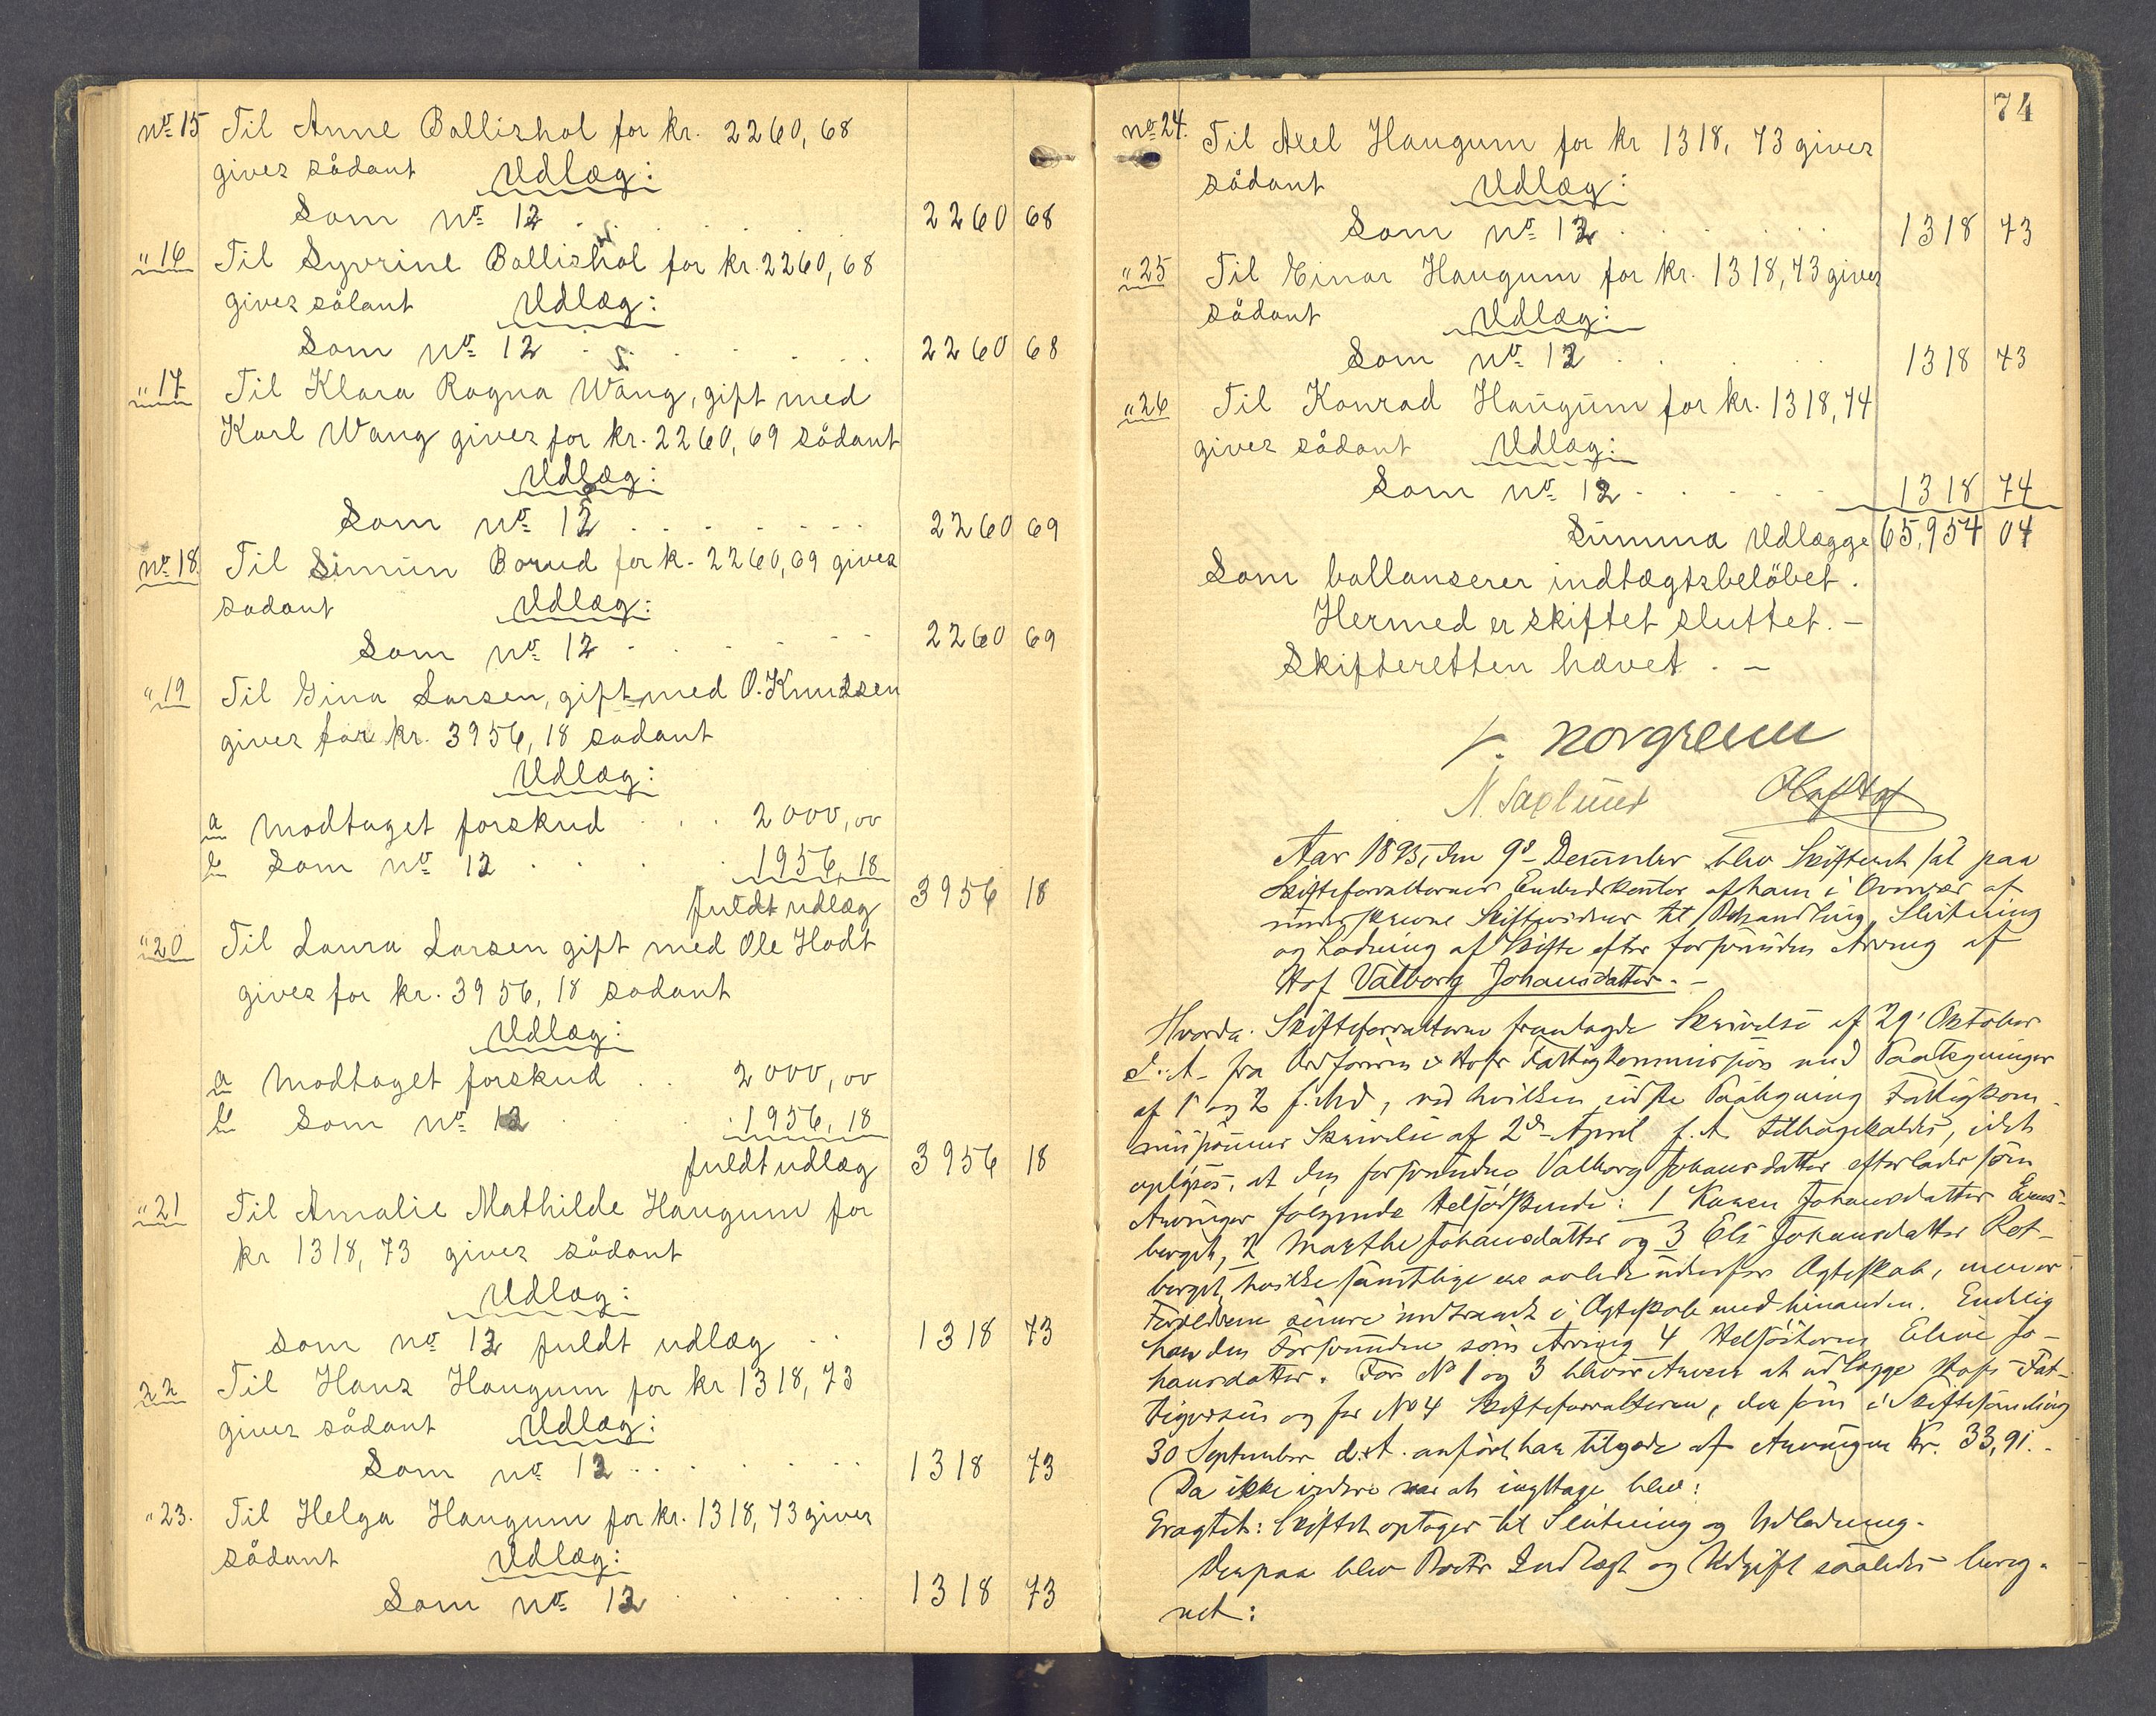 No 15 Til Anne Ballishol for kr. 2260,68
gives sådant Udlæg:
Som No 12 . . . . . 2260 68
" 16 Til Syvrine Ballishol for kr. 2260,68
gives sålant Udlæg:
Som No 12 . . . . . 2260 68
" 17 Til Klara Ragna Wang, gift med
Karl Wang gives for kr. 2260,69 sådant
Udlæg:
Som No 12 . . . . . 2260 69
No 18. Til Simun Borud for k. 2260,69 gives
sadant Udlæg:
Som No 12 . . . . . 2260 69
" 19 Til Gina Larsen, gift med O. Knudsen
gives for kr. 3956,18 sadant
Udlæg:
a Modtaget forskud . . . 2000,00
b Som No 12 . . . . 1956,18
fuldt udlæg 3956 18
" 20 Til Laura Larsen gift med Ole Hodt
gives for kr. 3956,18 sadant
Udlæg:
a Modtaget forskud . . 2000,00
b Som No 12 . . . 1956,18
fuldt udlæg 3956 18
" 21 Til Amalie Mathilde Haugum for
kr 1318,73 gives sådant
Udlæg:
som No 12 fuldt udlæg . . 1318 73
22 Til Hans Haugum for kr 1318,73
gives sådant Udlæg:
Som No 12 . . . . . 1318 73
" 23. Til Helga Haugum for kr. 1318,73 gives
sådant Udlæg:
Som No 12 . . . . . 1318 73
74
No 24. Til Axel Haugum for kr 1318,73 gives
sådant Udlæg:
Som No 12 . . . . . 1318 73
" 25 Til Einar Haugum for kr. 1318,73 gives
sådant Udlæg:
Som No 12 . . . . 1318 73
" 26 Til Konrad Haugum for kr. 1318,74
gives sådant Udlæg:
Som No 12 . . . . . 1318 74
Summa Udlægge 65,954 04
Som ballanserer indtægtsbeløbet.
Hermed er skiftet sluttet. –
Skifteretten hævet. –
Norgrenn
N. Saxlund
Aar 1893, den 9de December blev Skifteret sat paa
Skifteforvalterens Embedskontor af ham i Overvær af
underskrevne Skiftevidner til Behandling, Slutning
og Lodning af Skifte efter forsvunden Arving af
Hof Valborg Johansdatter. –
Hvorda. Skifteforvalteren fremlagde Skrivelse af 29' Oktober
d. A. fra Ordføreren i Hofs Fattigkommission med Paategninger
af 1 og 2 f. Md, ved hvilken sidste Paategning Fattigkom-
missionens Skrivelse af 2den April f. A. tilbagekaldes, idet
oplyses, at den forsvundne Valborg Johansdatter efterlader som
Arvinger følgende Helsødskende: 1 Karen Johansdatter
berget, 2 Marthe Johansdatter og 3 Eli Johansdatter Rot-
berget, hvilke samtlige ere avlede udenfor Ægteskab, men er
Forældrene senere indtraadt i Ægteskab med hinanden. Endelig
har den Forsvundne som Arving 4 Helsøsteren Eline Jo-
hansdatter. For No 1 og 3 bliver Arven at udlægge Hofs Fat-
tigvæsen og for No 4 Skifteforvalteren, der som i Skiftesamling
30 September d. A. anført har tilgode af Arvingen Kr. 33,91. –
Da ikke videre var at iagttage blev:
Eragtet: Skiftet optages til Slutning og Udlodning.
Derpaa blev Boets Indtægt og Udgift saaledes bereg-
net: